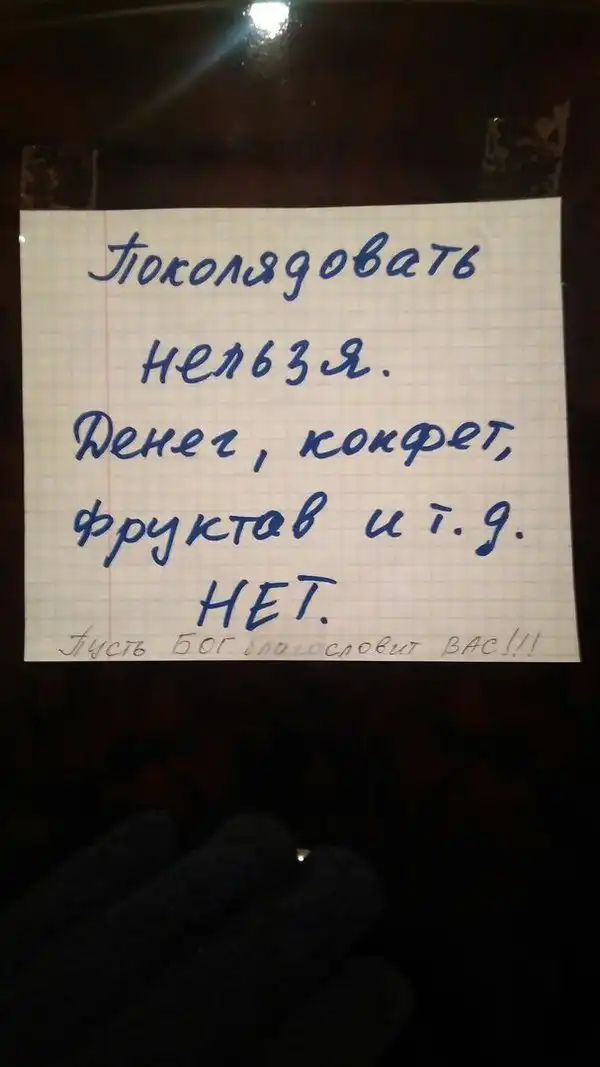 Поколядовать
нельзя.
Денег, конфет,
фруктав и т.д.
НЕТ.
Пусть БОГ благословит ВАС!!!